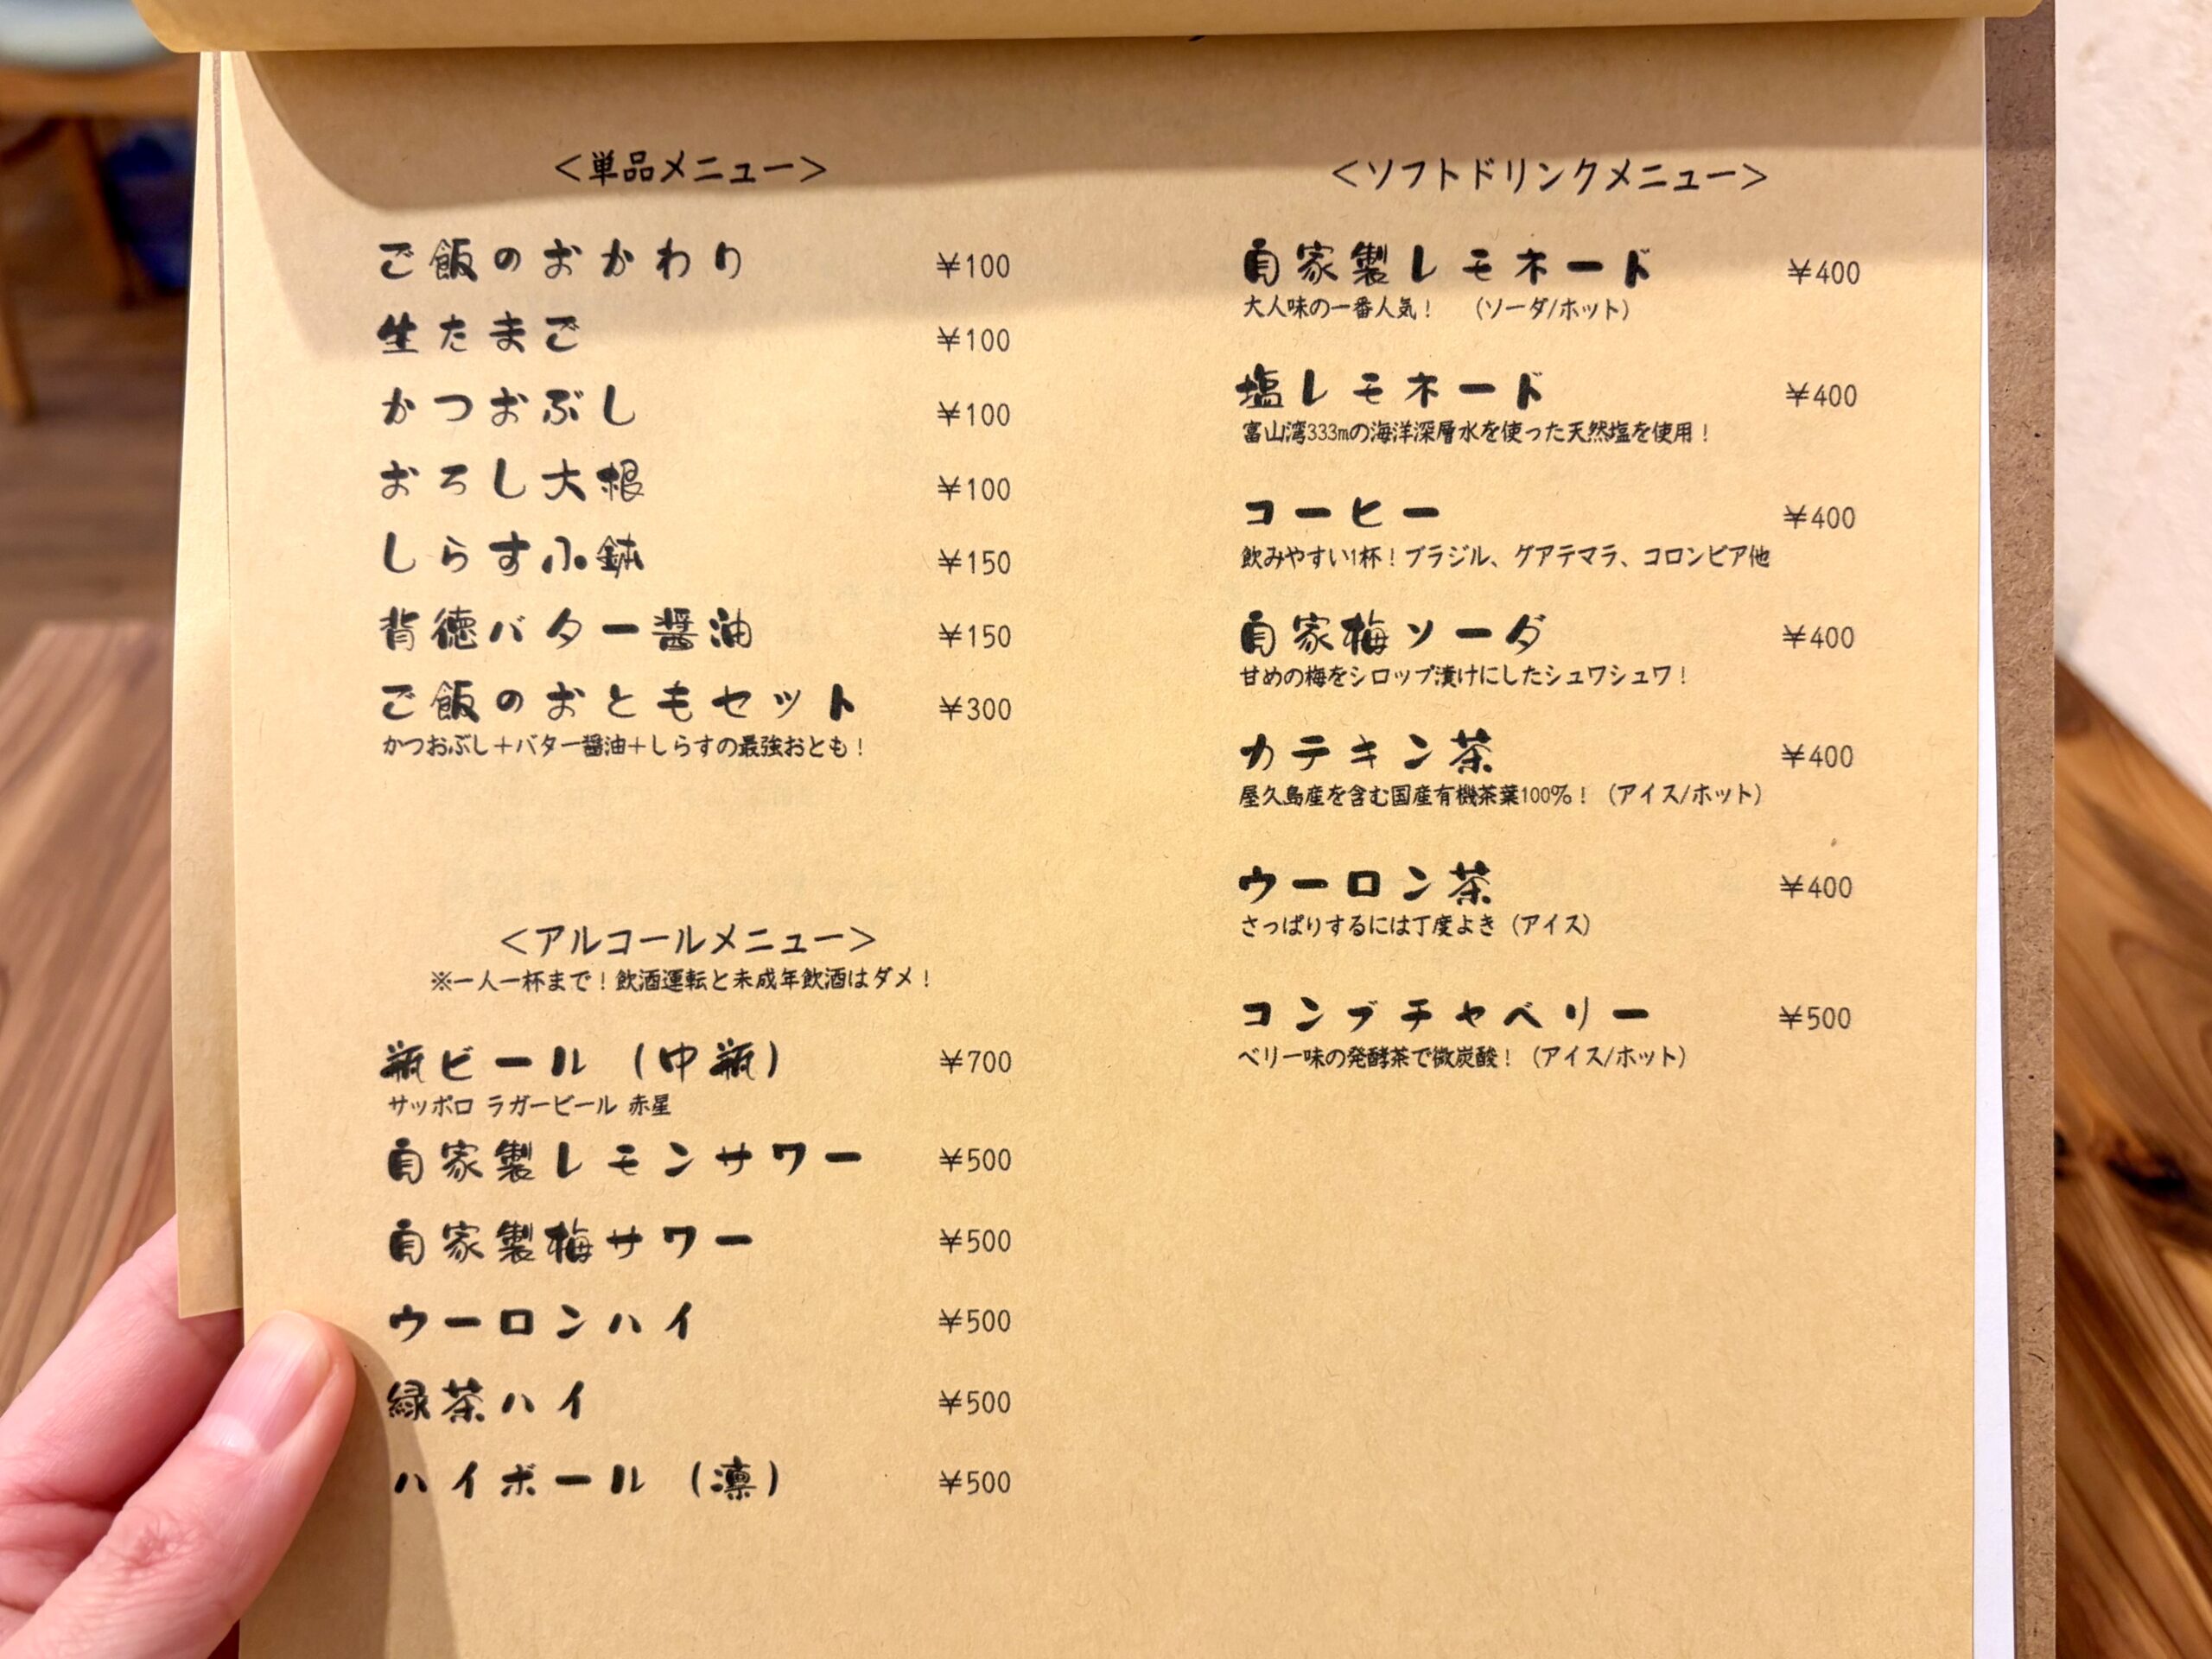 ＜単品メニュー＞
ご飯のおかわり ¥100
生たまご ¥100
かつおぶし ¥100
おろし大根 ¥100
しらす小鉢 ¥150
背徳バター醤油 ¥150
ご飯のおともセット ¥300
かつおぶし＋バター醤油＋しらすの最強おとも！
＜アルコールメニュー＞
※一人一杯まで！飲酒運転と未成年飲酒はダメ！
瓶ビール（中瓶） ¥700
サッポロ ラガービール 赤星
自家製レモンサワー ¥500
自家製梅サワー ¥500
ウーロンハイ ¥500
緑茶ハイ ¥500
ハイボール（凛） ¥500
＜ソフトドリンクメニュー＞
自家製レモネード ¥400
大人味の一番人気！ （ソーダ/ホット）
塩レモネード ¥400
富山湾333mの海洋深層水を使った天然塩を使用！
コーヒー ¥400
飲みやすい1杯！ブラジル、グアテマラ、コロンビア他
自家梅ソーダ ¥400
甘めの梅をシロップ漬けにしたシュワシュワ！
カテキン茶 ¥400
屋久島産を含む国産有機茶葉100%！（アイス/ホット）
ウーロン茶 ¥400
さっぱりするには丁度よき（アイス）
コンブチャベリー ¥500
ベリー味の発酵茶で微炭酸！（アイス/ホット）